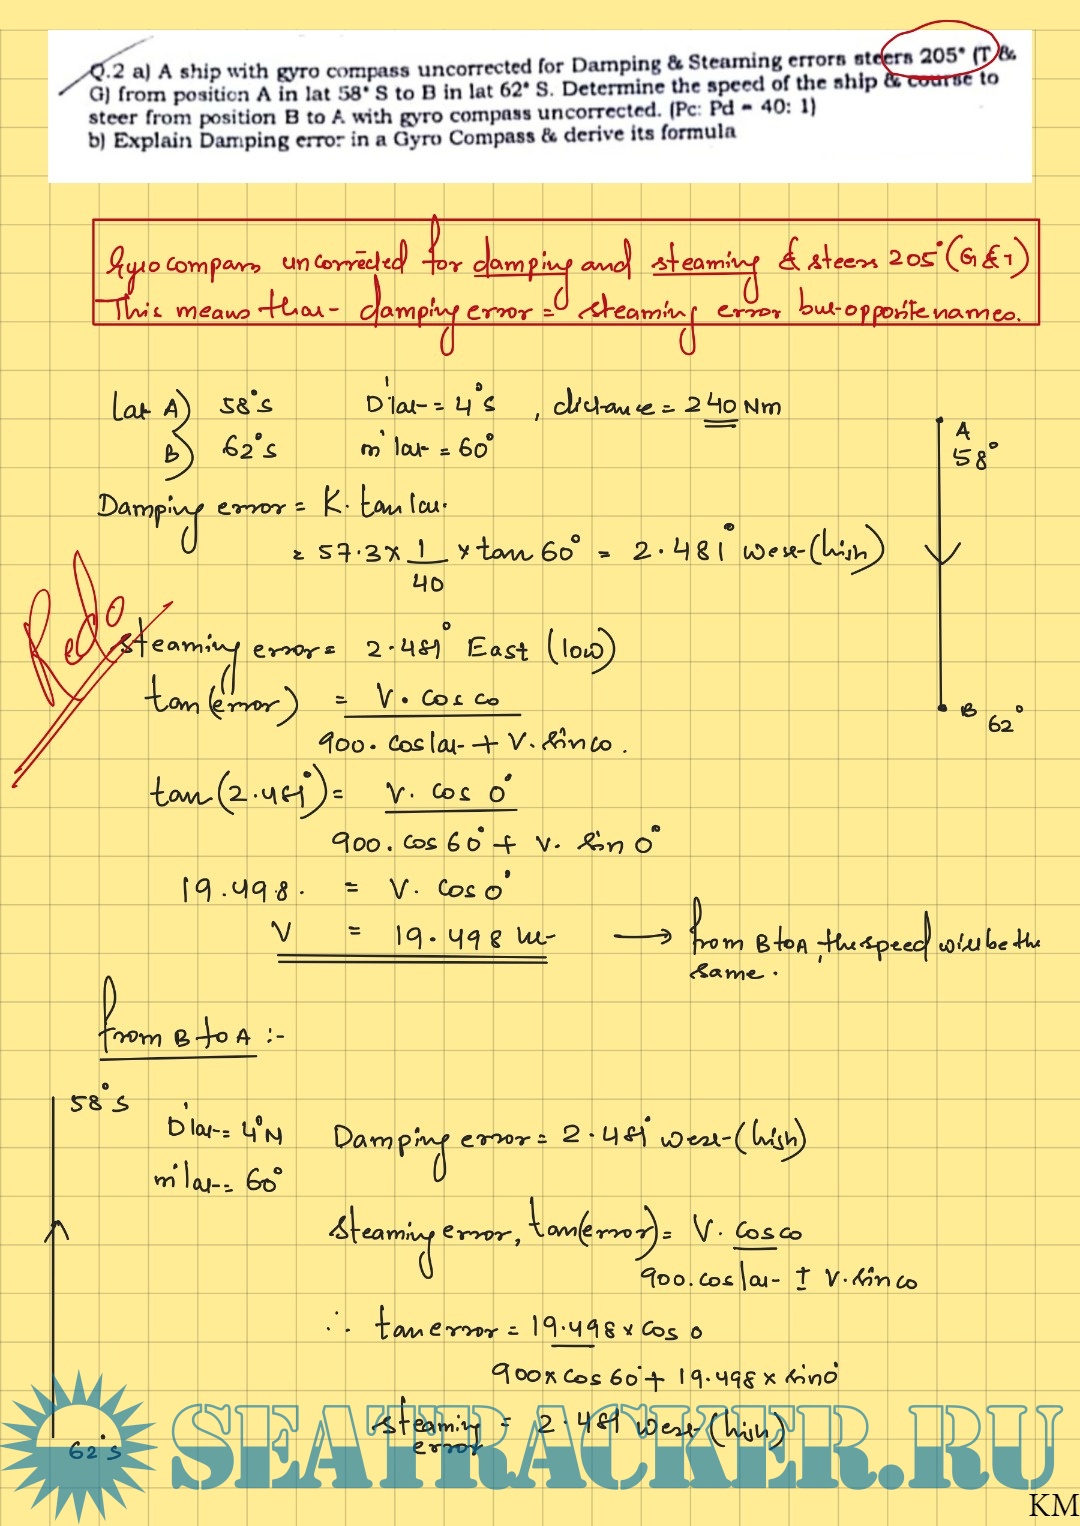 Q.2 a) A ship with gyro compass uncorrected for Damping & Steaming errors steers 205° (T &
G) from position A in lat 58° S to B in lat 62° S. Determine the speed of the ship & course to
steer from position B to A with gyro compass uncorrected. (Pc: Pd = 40: 1)
b) Explain Damping error in a Gyro Compass & derive its formula
Gyro compass uncorrected for damping and steaming & steers 205° (G & T)
This means that damping error = steaming error but opposite names.
Lat A) 58°S D'lat = 4°S , distance = 240 Nm
B) 62°S m'lat = 60°
A
58°
Damping error = K. tan lat.
= 57.3 x 1/40 x tan 60° = 2.481° west (high)
Redo
steaming error = 2.481° East (low)
tan (error) = V. cos co
900. cos lat + V. sin co.
B 62°
tan (2.481°) = V. cos 0°
900. cos 60° + V. sin 0°
19.498. = V. cos 0°
V = 19.498 kt → from B to A, the speed will be the
same.
from B to A :-
58°S
D'lat = 4°N Damping error = 2.481° west (high)
m'lat = 60°
Steaming error, tan(error) = V. cos co
900. cos lat ± V. sin co
∴ tan error = 19.498 x cos 0
900 x cos 60° + 19.498 x sin 0°
steaming error = 2.481 west (high)
62°S
SEATRACKER.RU
KM